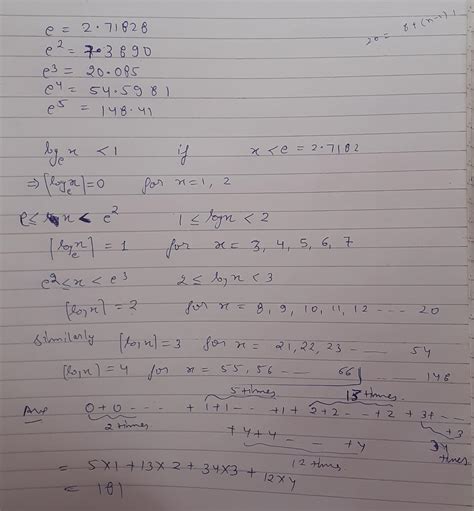 e = 2.71828
20 = 8+(n-1)1
e² = 7.3890
e³ = 20.085
e⁴ = 54.5981
e⁵ = 148.41
logₑ x < 1 if x < e = 2.7182
⇒ [logₑ x] = 0 for x = 1, 2
e ≤ x < e² 1 ≤ log x < 2
[logₑ x] = 1 for x = 3, 4, 5, 6, 7
e² ≤ x < e³ 2 ≤ log x < 3
[log x] = 2 for x = 8, 9, 10, 11, 12 ---- 20
Similarly [log x] = 3 for x = 21, 22, 23 - ---- 54
[log x] = 4 for x = 55, 56 --- 66 ---- 148
5 times 13 times
Ans 0 + 0 --- + 1+1 -- +1 + 2+2 --- +2 + 3+ --- +3
2 times 34 times
+ 4+4 -- -- +4
12 times
= 5×1 + 13×2 + 34×3 + 12×4
= 181